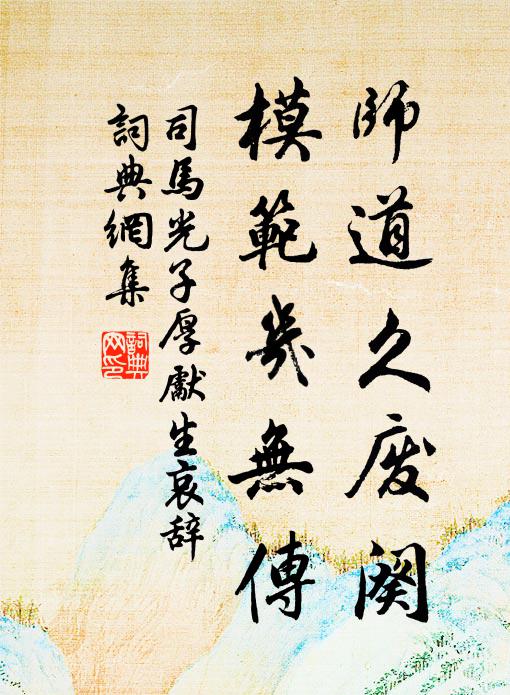 師道久廢闋
模範幾無傳
司馬光子厚獻生哀辞
詞典網集
詞典網印